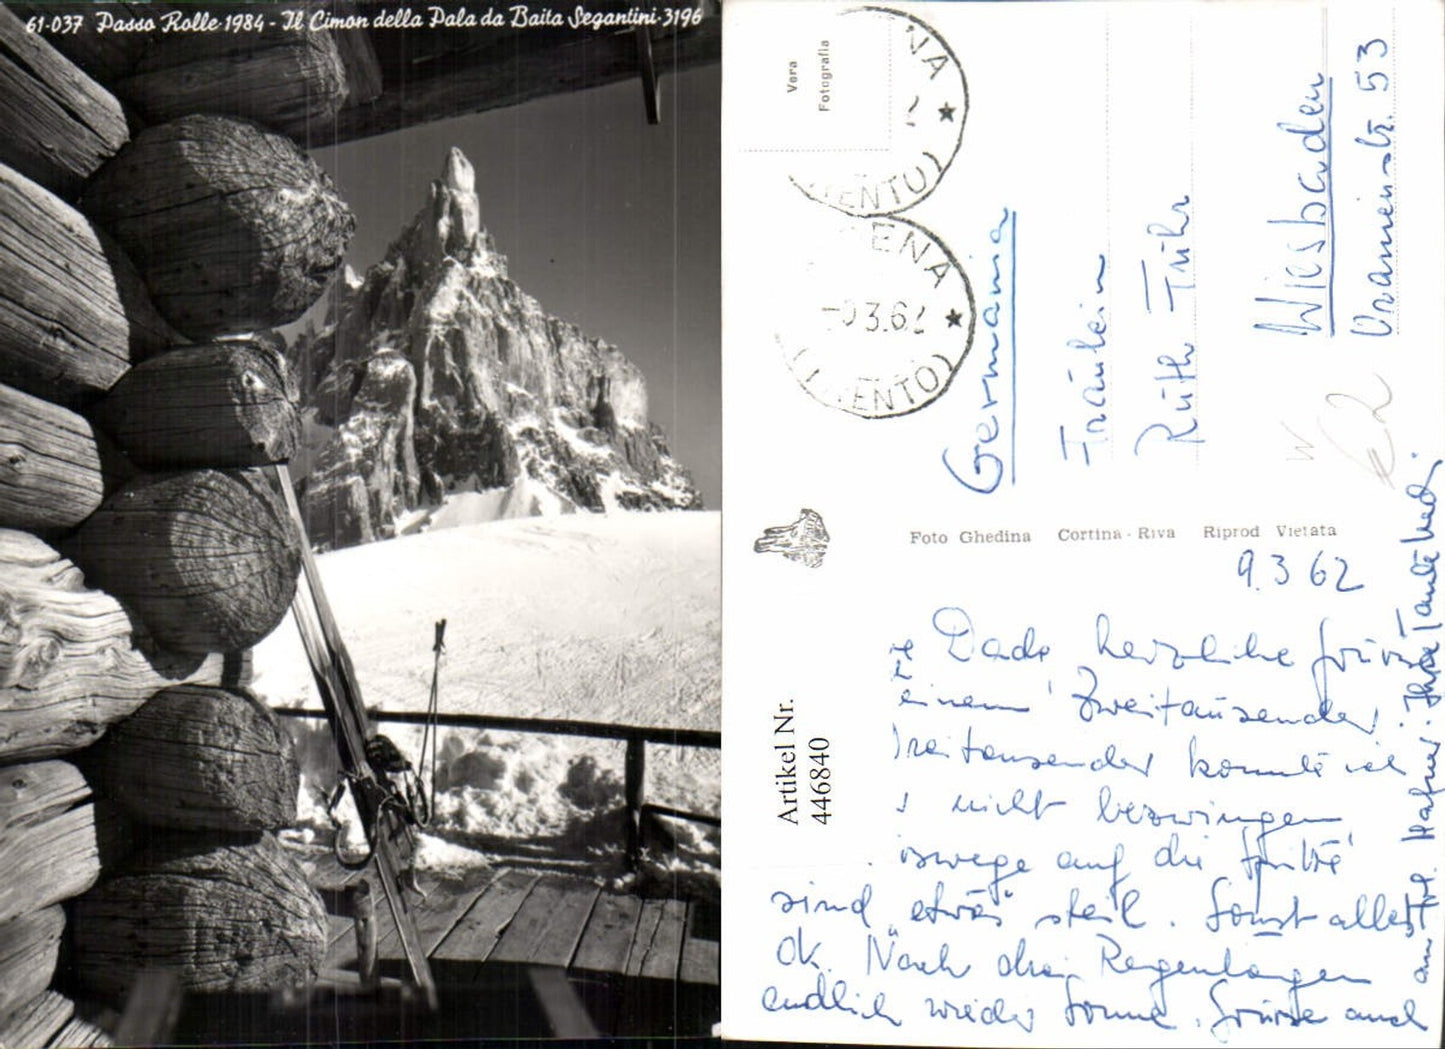 61-037 Passo Rolle-1984 - Il Cimon della Pala da Baita Segantini-3196
Vera
Fotografia
NA
2
ENTO)
ENA
3.62
ENTO)
Germania
Fräulein
Ruth Führ
Wiesbaden
Oranienstr. 53
Foto Ghedina Cortina - Riva Riprod Vietata
9.3 62
Artikel Nr.
446840
herzliche
einem Zweitausender
konnte ich
nicht bezwingen
auf die Spitze
sind etwas steil. Sonst alles
Ok. Nach drei Regentagen
endlich wieder Sonne. Grüsse auch
an Ihre Tante